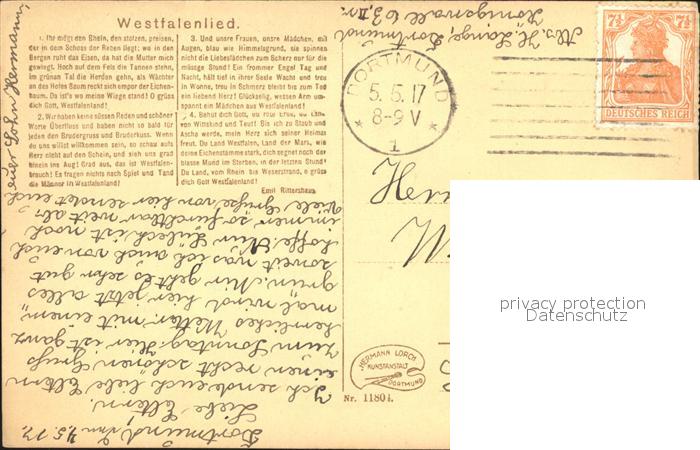 Westfalenlied.
1. Ihr mögt den Rhein, den stolzen, preisen,
der in dem Schoss der Reben liegt; wo in den
Bergen ruht das Eisen, da hat die Mutter mich
gewiegt. Hoch auf dem Fels die Tannen stehn,
im grünen Tal die Herden gehn, als Wächter
an des Hofes Saum reckt sich empor der Eichen-
baum. Da ist's wo meine Wiege stand! O grüss
dich Gott, Westfalenland!
2. Wir haben keine süssen Reden und schöner
Worte Überfluss und haben nicht so bald für
jeden den Brudergruss und Bruderkuss. Wenn
du uns willst willkommen sein, so schau aufs
Herz nicht auf den Schein, und sieh uns grad
hinein ins Aug! Grad aus, das ist Westfalen-
brauch! Es fragen nichts nach Spiel und Tand
die Männer in Westfalenland!
3. Und unsre Frauen, unsre Mädchen, mit
Augen, blau wie Himmelsgrund, sie spinnen
nicht die Liebesfädchen zum Scherz nur für die
müssge Stund! Ein frommer Engel Tag und
Nacht, hält tief in ihrer Seele Wacht und treu
in Wonne, treu in Schmerz bleibt bis zum Tod
ein liebend Herz! Glückselig, wessen Arm um-
spannt ein Mädchen aus Westfalenland!
4. Behüt dich Gott, du rote Erde, du Land
von Wittekind und Teut! Bis ich zu Staub und
Asche werde, mein Herz sich seiner Heimat
freut. Du Land Westfalen, Land der Mark, wie
deine Eichenstämme stark, dich segnet noch der
blasse Mund im Sterben, in der letzten Stund!
Du Land, vom Rhein bis Weserstrand, o grüss
dich Gott Westfalenland!
Emil Rittershaus
Abs. H. Lange, Dortmund
Königswall 63, II.
DORTMUND
5. 5. 17
8-9 V
1
7½ 7½
DEUTSCHES REICH
Herr
W
HERMANN LORCH
KUNSTANSTALT
DORTMUND
Nr. 1180 i.
Dortmund, den 4.5.17.
Liebe Eltern!
Ich sende euch liebe Eltern
einen recht schönen Gruß
zum Sonntag. Hier ist ganz
herrliches Wetter, mit einem
mal wird hier jetzt alles
grün. Mir geht es sehr gut
soweit was ich auch von euch
hoffe. Nur Lübeck ist noch
immer so furchtbar weit ab.
Viele Grüße von hier sendet euch
euer Sohn Hermann.
privacy protection
Datenschutz